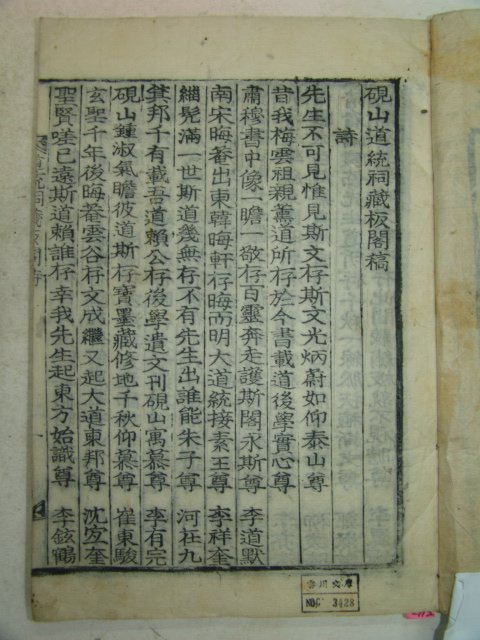 硯山道統祠藏板閣稿
詩
先生不可見惟見斯文存斯文光炳蔚如仰泰山尊
昔我梅雲祖親薰道所存於今書載道後學實心尊
肅穆書中像一瞻一敬存百靈奔走護斯閣永斯尊 李道默
南宋晦菴出東韓晦軒存晦而明大道統接素王尊 李祥奎
緇髡滿一世斯道幾無存不有先生出誰能朱子尊 河在九
箕邦千有載吾道賴公存後學遺文刊硯山寓慕尊 李有完
硯山鍾淑氣瞻彼道斯存寶墨藏修地千秋仰慕尊 崔東駿
玄聖千年後晦菴雲谷存文成繼又起大道東邦尊 沈宜奎
聖賢嗟已遠斯道賴誰存幸我先生起東方始識尊 李鉉
NO. 3428